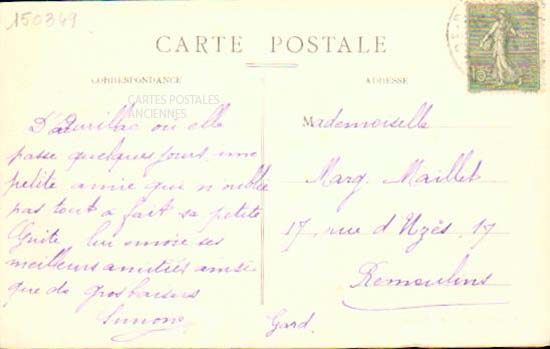 150349
CARTE POSTALE
CORRESPONDANCE
ADRESSE
CARTES POSTALES
ANCIENNES
D'Aurillac ou elle
passe quelques jours une
petite amie qui n'oublie
pas tout à fait sa petite
Guite, lui envoie ses
meilleurs amitiés ainsi
que de gros baisers
Simone
Mademoiselle
Marg. Maillet
17, rue d'Uzès, 17
Remoulins
Gard.
15c